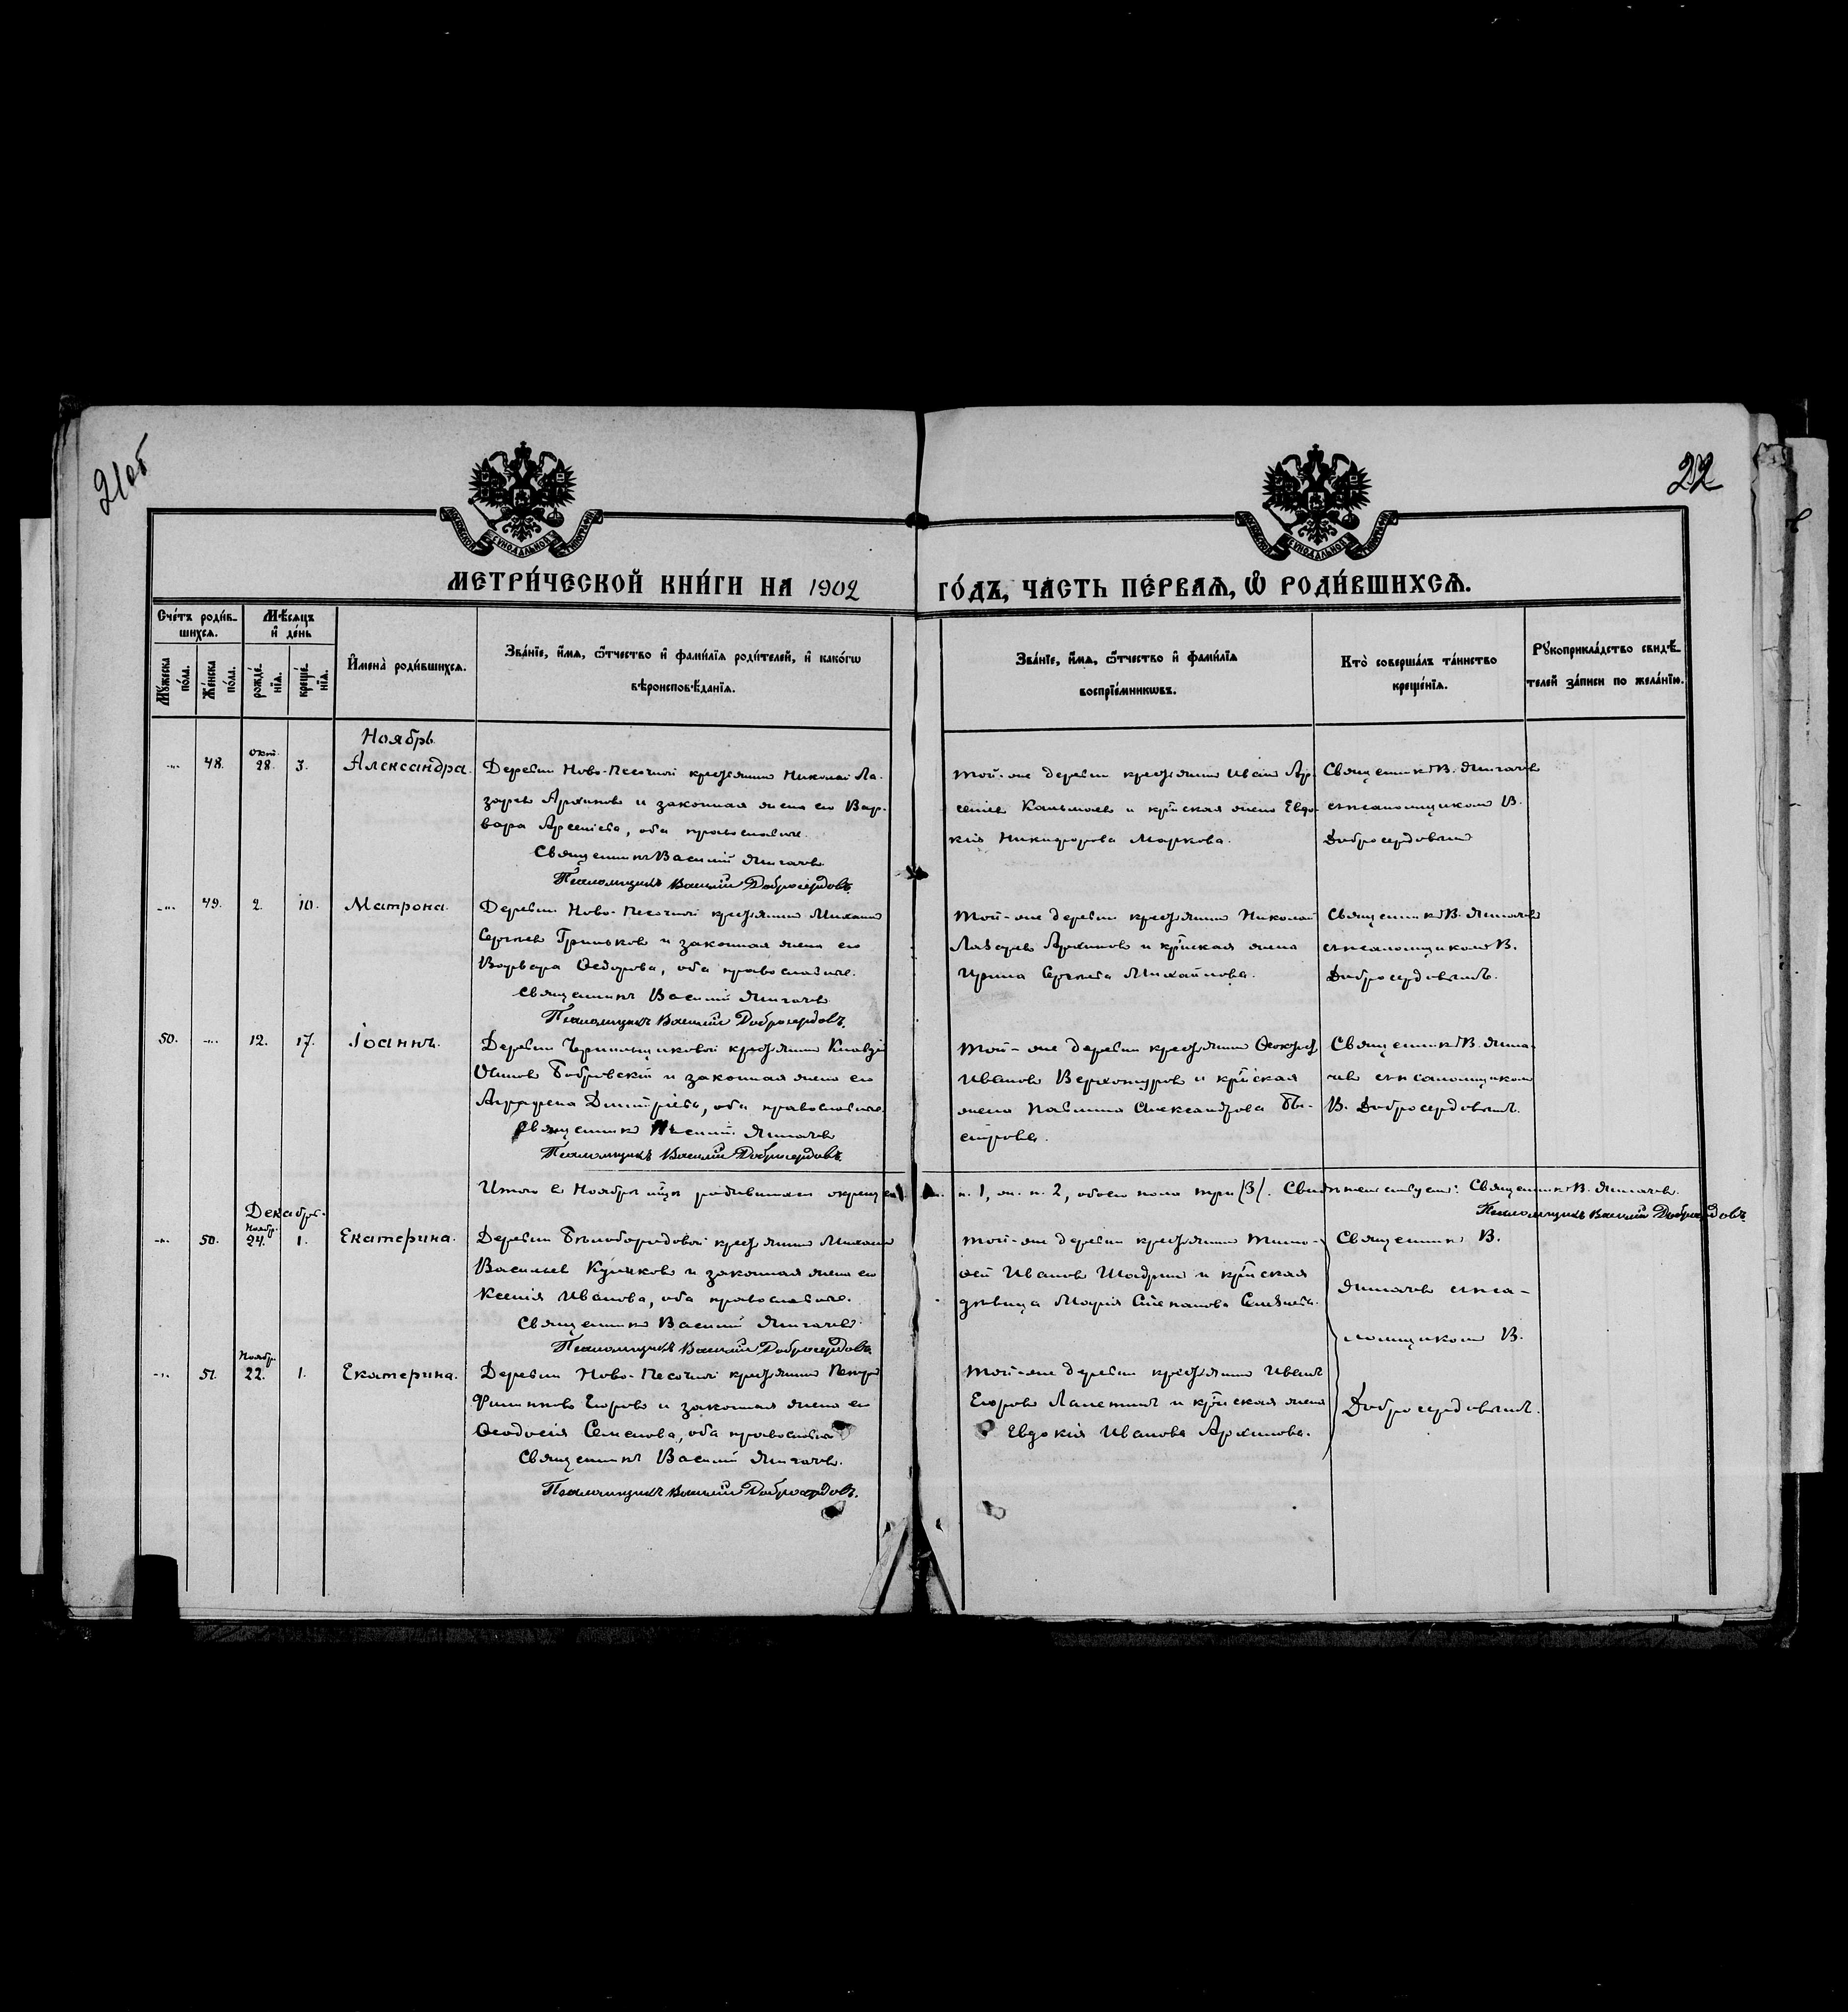 21об
22
МЕТРИ́ЧЕСКОЙ КНИ́ГИ НА 1902
ГО́ДЪ, ЧА́СТЬ ПЕ́РВАѦ, Ѽ РОДИ́ВШИХСѦ.
Сче́тъ роди́в-
шихсѧ.
Мѣ́сѧцъ
и҆ де́нь
Мꙋ́жеска
по́ла.
Же́нска
по́ла.
рожде́-
нїѧ.
креще́-
нїѧ.
И҆мена̀ роди́вшихсѧ.
Зва́нїе, и҆́мѧ, ѻ҆́тчество и҆ фами́лїѧ роди́телей, и҆ како́гѡ
вѣроисповѣ́данїѧ.
Зва́нїе, и҆́мѧ, ѻ҆́тчество и҆ фами́лїѧ
воспрїе́мникѡвъ.
Кто̀ соверша́лъ та́инство
креще́нїѧ.
Рꙋкоприкла́дство свидѣ́-
телей за́писи по жела́нїю.
Ноябрь
48. Окт. 28. 3. Александра.
Деревни Ново-Песочной крестьянинъ Николай Ла-
заревъ Архиповъ и законная жена его Вар-
вара Арсеніева, оба православные.
Священникъ Василий
Псаломщикъ Василий Добросердовъ.
Той-же деревни крестьянинъ Иванъ Ар-
сеніевъ и кр-нская жена Евдо-
кія Никифорова Маркова.
Священникъ В.
съ псаломщикомъ В.
Добросердовымъ
49. 2. 10. Матрона.
Деревни Ново-Песочной крестьянинъ Михаилъ
Сергѣевъ Гриньковъ и законная жена его
Варвара Ѳедорова, оба православные.
Священникъ Василий
Псаломщикъ Василий Добросердовъ.
Той-же деревни крестьянинъ Николай
Лазаревъ Архиповъ и кр-нская жена
Ирина Сергѣева Михайлова.
Священникъ В.
съ псаломщикомъ В.
Добросердовымъ.
50. 12. 17. Іоаннъ.
Деревни крестьянинъ
Осиповъ Бобровскій и законная жена его
Агрифена Димитріева, оба православные.
Священникъ Василий
Псаломщикъ Василий Добросердовъ.
Той-же деревни крестьянинъ
Ивановъ Верхотуровъ и кр-нская
жена Павлина Александрова Бы-
строва.
Священникъ В.
съ псаломщикомъ
В. Добросердовымъ.
Итого въ Ноябрѣ м-цѣ родившихся
п. 1, ж. п. 2, обоего пола три /3/. Свидѣтельствуетъ: Священникъ В.
Псаломщикъ Василий Добросердовъ.
Декабрь.
50. Ноябр. 24. 1. Екатерина.
Деревни Бѣлобородовой крестьянинъ Михаилъ
Васильевъ Куликовъ и законная жена его
Ксенія Иванова, оба православные.
Священникъ Василий
Псаломщикъ Василий Добросердовъ.
Той-же деревни крестьянинъ Тимо-
ѳей Ивановъ Шадринъ и кр-нская
дѣвица Марія Степанова
Священникъ В.
съ пса-
ломщикомъ В.
Добросердовымъ.
51. Ноябр. 22. 1. Екатерина.
Деревни Ново-Песочной крестьянинъ Петръ
Филипповъ Егоровъ и законная жена его
Ѳеодосія Семенова, оба православные
Священникъ Василий
Псаломщикъ Василий Добросердовъ.
Той-же деревни крестьянинъ Иванъ
Егоровъ Лапетинъ и кр-нская жена
Евдокія Иванова Архипова.